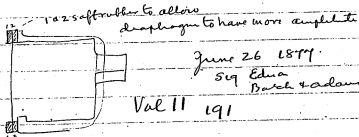 1 & 2 soft rubber to allow
diaphragm to have more amplitude
12
June 26 1877
Sig Edna
Batch & Adams
Vol 11 191
12